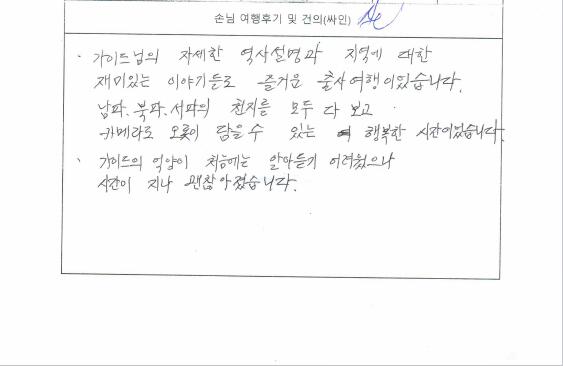 손님 여행후기 및 건의(싸인)
· 가이드님의 자세한 역사설명과 지역에 대한
재미있는 이야기들로 즐거운 출사여행이었습니다.
남파.북파.서파의 천지를 모두 다 보고
카메라로 오롯이 담을 수 있는 행복한 시간이었습니다.
· 가이드의 억양이 처음에는 알아듣기 어려웠으나
시간이 지나 괜찮아졌습니다.